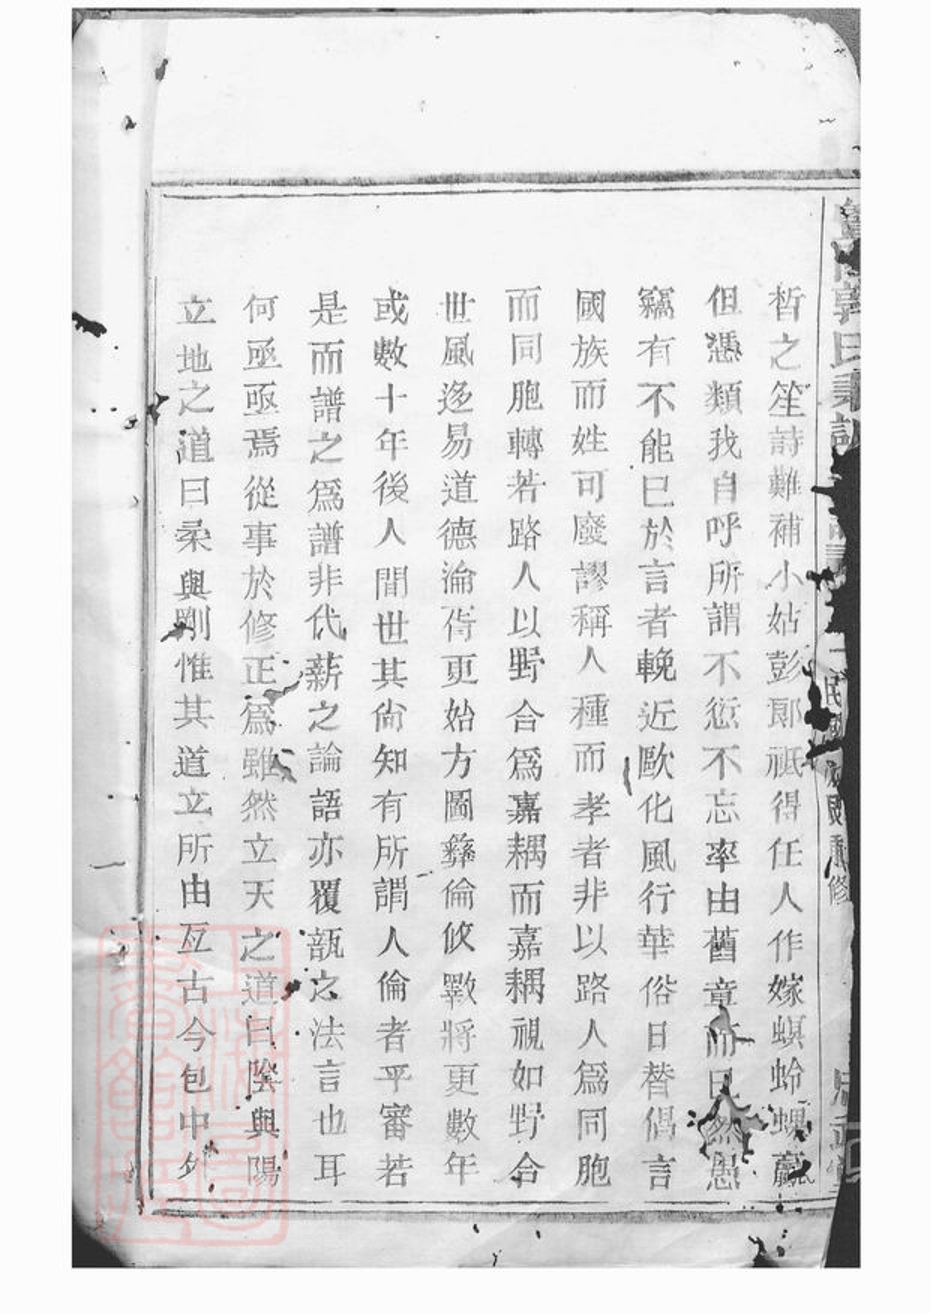 晳之笙詩難補小姑彭郞祇得任人作嫁螟蛉蜾蠃
但憑類我自呼所謂不愆不忘率由舊章而已然愚
竊有不能已於言者輓近歐化風行華俗日替倡言
國族而姓可廢謬稱人種而孝者非以路人爲同胞
而同胞轉若路人以野合爲嘉耦而嘉耦視如野合
世風迻易道德淪胥更始方圖彝倫攸斁將更數年
或數十年後人間世其尙知有所謂人倫者乎審若
是而譜之爲譜非代薪之論語亦覆瓿之法言也耳
何亟亟焉從事於修正爲雖然立天之道曰陰與陽
立地之道曰柔與剛惟其道立所由亙古今包中外